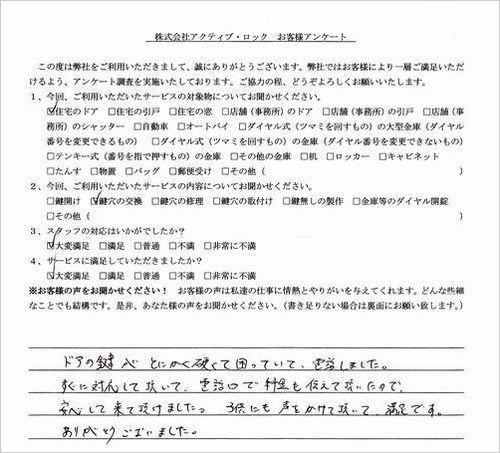 株式会社アクティブ・ロック　お客様アンケート
この度は弊社をご利用いただきまして、誠にありがとうございます。弊社ではお客様により一層ご満足いただ
けるよう、アンケート調査を実施いたしております。ご協力の程、どうぞよろしくお願いいたします。
1、今回、ご利用いただいたサービスの対象物についてお聞かせください。
☑住宅のドア　□住宅の引戸　□住宅の窓　□店舗（事務所）のドア　□店舗（事務所）の引戸　□店舗（事
務所）のシャッター　□自動車　□オートバイ　□ダイヤル式（ツマミを回すもの）の大型金庫（ダイヤル
番号を変更できるもの）　□ダイヤル式（ツマミを回すもの）の金庫（ダイヤル番号を変更できないもの）
□テンキー式（番号を指で押すもの）の金庫　□その他の金庫　□机　□ロッカー　□キャビネット
□たんす　□物置　□バッグ　□郵便受け　□その他（　　　　　）
2、今回、ご利用いただいたサービスの内容についてお聞かせください。
□鍵開け　☑鍵穴の交換　□鍵穴の修理　□鍵穴の取付け　□鍵無しの製作　□金庫等のダイヤル開錠
□その他（　　　　　）
3、スタッフの対応はいかがでしたか？
☑大変満足　□満足　□普通　□不満　□非常に不満
4、サービスに満足していただきましたか？
☑大変満足　□満足　□普通　□不満　□非常に不満
※お客様の声をお聞かせください！　お客様の声は私達の仕事に情熱とやりがいを与えてくれます。どんな些細
なことでも結構です。是非、あなた様の声をお聞かせください。（書き足りない場合は裏面にお願い致します。）
ドアの鍵が とにかく硬くて困っていて、電話しました。
すぐに対応して頂いて、電話口で料金も伝えて頂いたので、
安心して来て頂けました。子供にも声をかけて頂いて、満足です。
ありがとうございました。